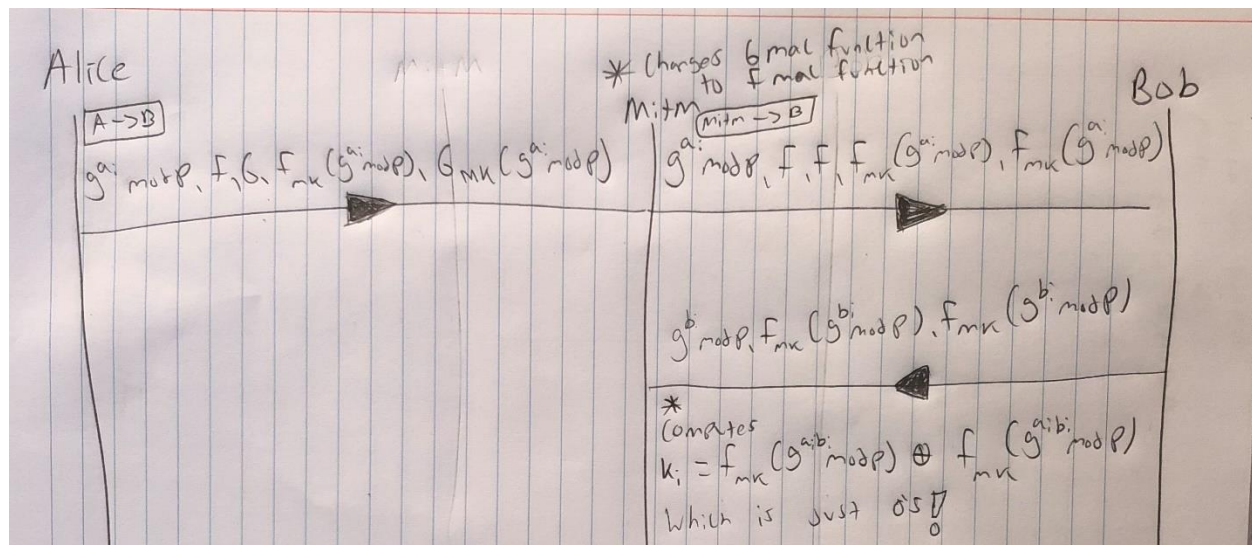 Alice
* Changes G mac function
to f mac function
Mitm
Bob
A -> B
Mitm -> B
g^ai mod p, f, G, f_mk(g^ai mod p), G_mk(g^ai mod p)
g^ai mod p, f, f, f_mk(g^ai mod p), f_mk(g^ai mod p)
g^bi mod p, f_mk(g^bi mod p), f_mk(g^bi mod p)
*
Computes
K_i = f_mk(g^aibi mod p) ⊕ f_mk(g^aibi mod p)
Which is just 0s!